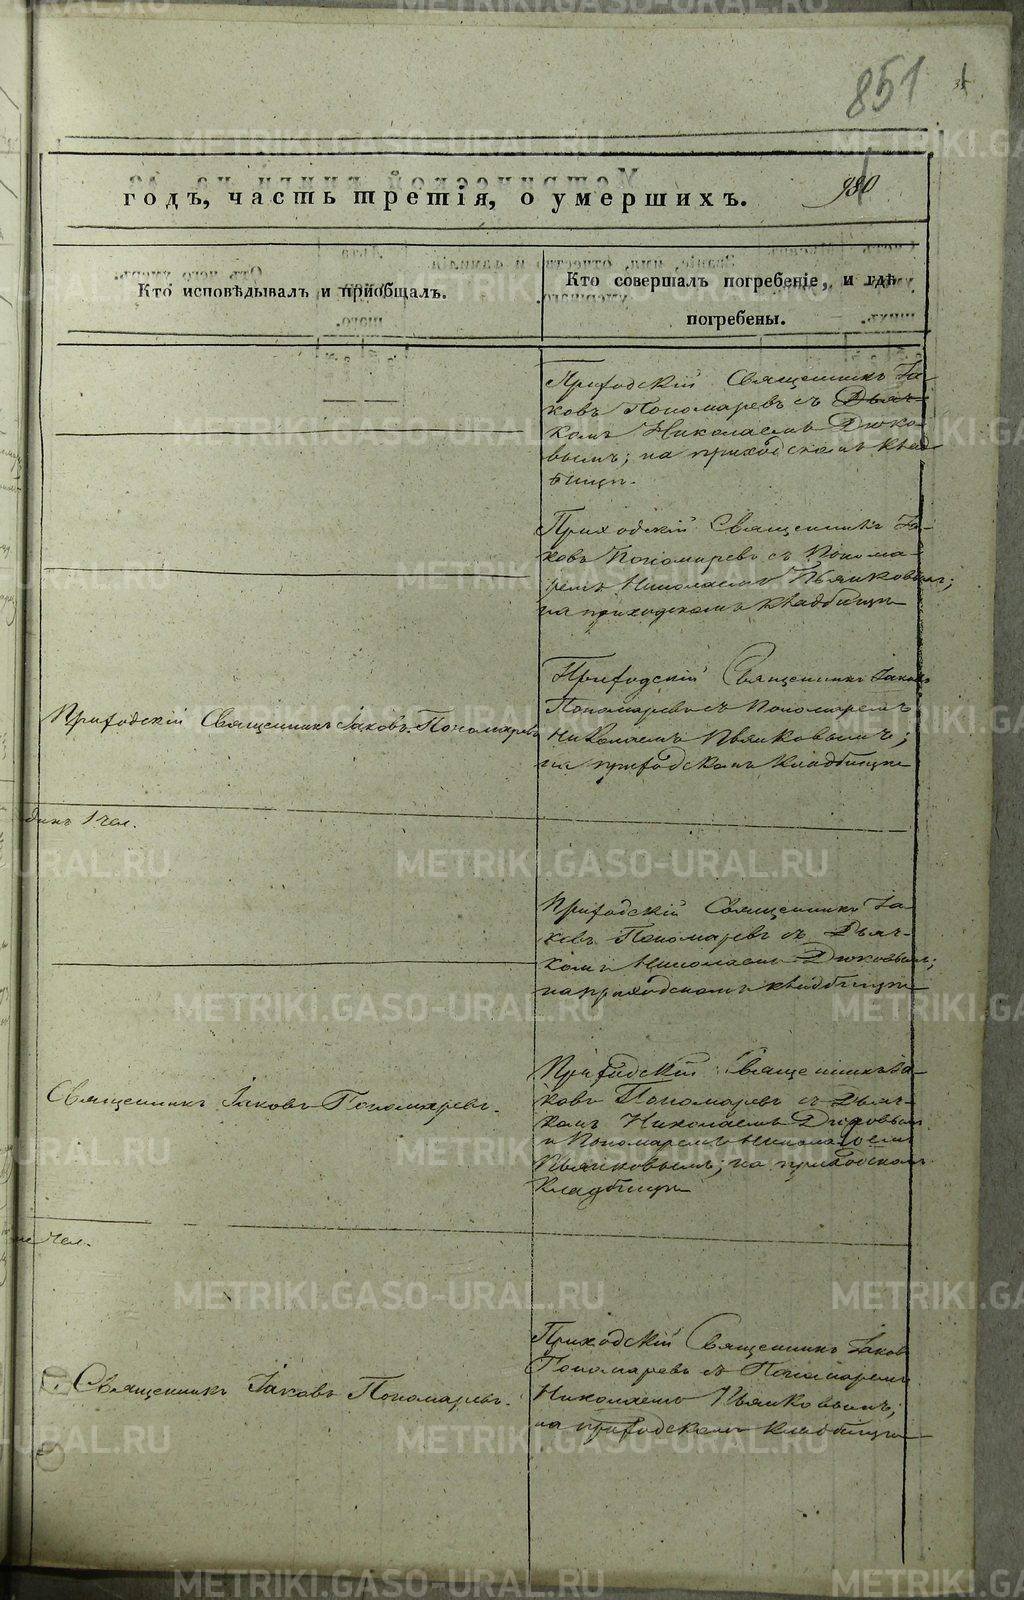 851
930
годъ, часть третія, о умершихъ.
Кто исповѣдывалъ и пріобщалъ.
Кто совершалъ погребеніе, и гдѣ
погребены.
Приходскій Священникъ Іа-
ковъ Пономаревъ съ Дьяч-
комъ Николаемъ Дюко-
вымъ; на приходскомъ клад-
бищѣ.
Приходскій Священникъ Іа-
ковъ Пономаревъ съ Понома-
ремъ Николаемъ Пьянковымъ;
на приходскомъ кладбищѣ
Приходскій Священникъ Іаковъ Пономаревъ
Приходскій Священникъ Іаковъ
Пономаревъ съ Пономаремъ
Николаемъ Пьянковымъ;
на приходскомъ кладбищѣ
динъ 1 чел.
Приходскій Священникъ Іа-
ковъ Пономаревъ съ Дьяч-
комъ Николаемъ Дюковымъ;
на приходскомъ кладбищѣ
Священникъ Іаковъ Пономаревъ.
Приходскій Священникъ Іа-
ковъ Пономаревъ съ Дьяч-
комъ Николаемъ Дюковымъ
и Пономаремъ Николаемъ
Пьянковымъ; на приходскомъ
кладбищѣ
чел.
Священникъ Іаковъ Пономаревъ.
Приходскій Священникъ Іаковъ
Пономаревъ съ Пономаремъ
Николаемъ Пьянковымъ;
на приходскомъ кладбищѣ
METRIKI.GASO-URAL.RU